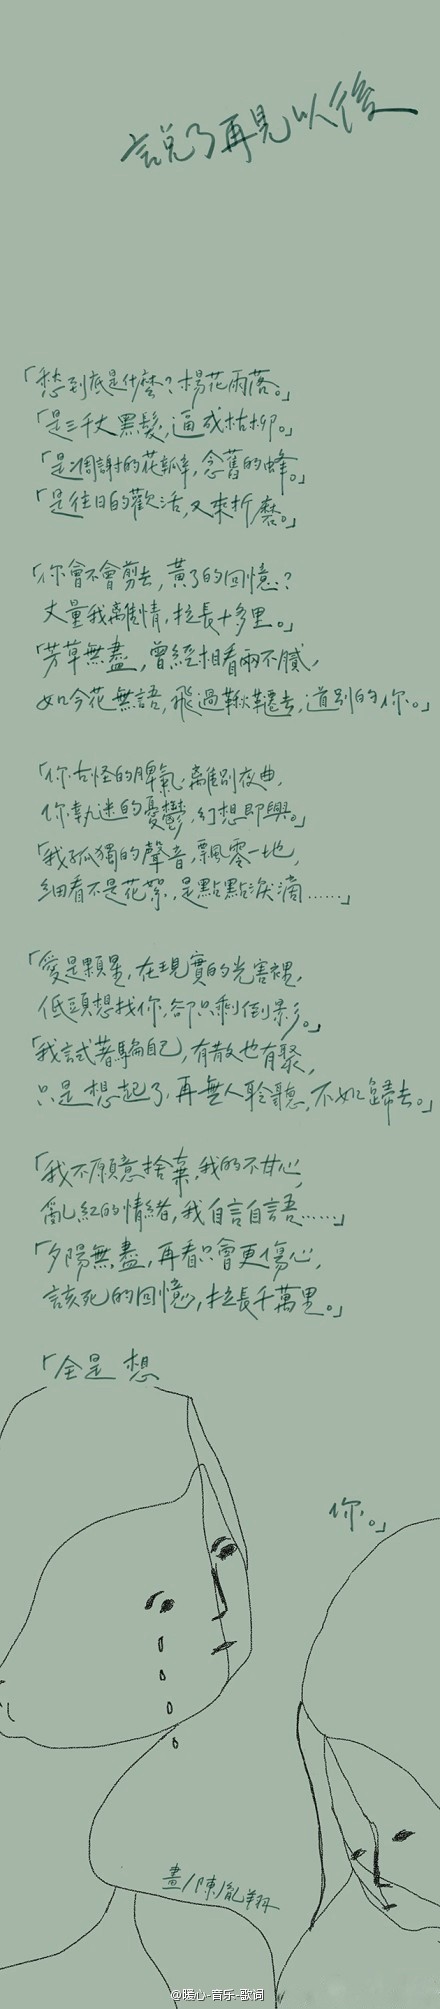 說了再見以後
「愁到底是什麼？楊花雨落。」
「是三千丈黑髮，逼成枯柳。」
「是凋謝的花瓣，念舊的蜂。」
「是往日的歡活，又來折磨。」
「你會不會剪去，黃了的回憶？
丈量我離情，拉長十多里。」
「芳草無盡，曾經相看兩不膩，
如今花無語，飛過鞦韆去，道別的你。」
「你古怪的脾氣，離別夜曲，
你執迷的憂鬱，幻想即興。」
「我孤獨的聲音，飄零一地，
細看不是花絮，是點點淚滴……」
「愛是顆星，在現實的光害裡，
低頭想找你，卻只剩倒影。」
「我試著騙自己，有散也有聚，
只是想起了，再無人聆聽，不如歸去。」
「我不願意捨棄，我的不甘心，
亂紅的情緒，我自言自語……」
「夕陽無盡，再看只會更傷心，
該死的回憶，拉長千萬里。」
「全是想
你。」
畫/陳胤翔
@暖心-音乐-歌词